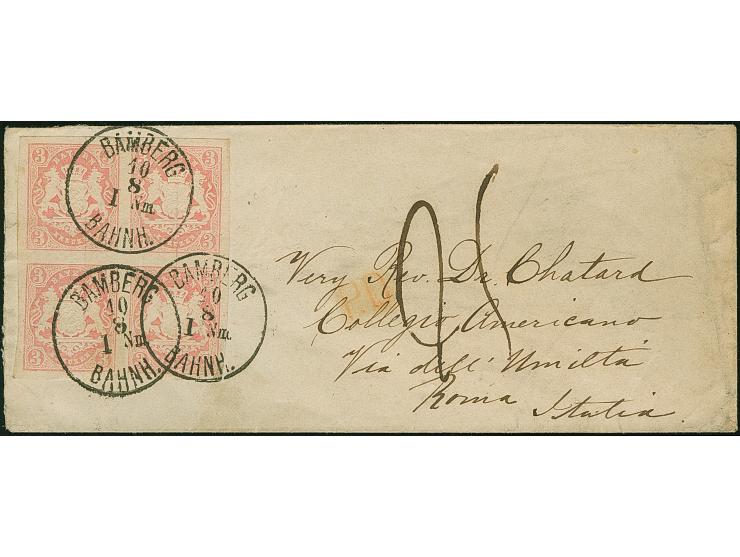 3 3 3
BAMBERG
10
8
1 Nm.
BAHNH.
3 3
BAMBERG
10
8
1 Nm.
BAHNH.
BAMBERG
10
8
1 Nm.
BAHNH.
3
P.D.
Very Rev. Dr. Chatard
Collegio Americano
Via dell' Umiltà
Roma Italia.